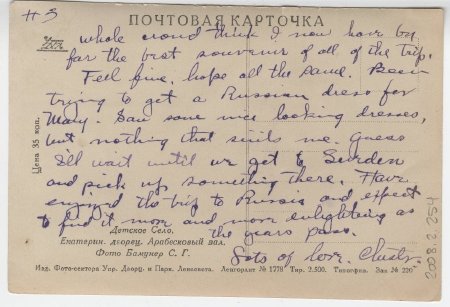 #3
ПОЧТОВАЯ КАРТОЧКА
whole crowd think I now have by
far the best souvenir of all of the trip.
Feel fine, hope all the same. Been
trying to get a Russian dress for
Mary. Saw some nice looking dresses,
but nothing that suits me. Guess
I'll wait until we get to Sweden
and pick up something there. Have
enjoyed the trip to Russia and expect
to find it more and more enlighting as
the years pass.
Lots of love.
Цена 35 коп.
Детское Село.
Екатерин. дворец. Арабесковый зал.
Фото Бамунер С. Г.
Изд. Фото-сектора Упр. Дворц. и Парк. Ленсовета. Ленгорлит № 1778 Тир. 2.500. Типография. Зак № 220
2008.2.254